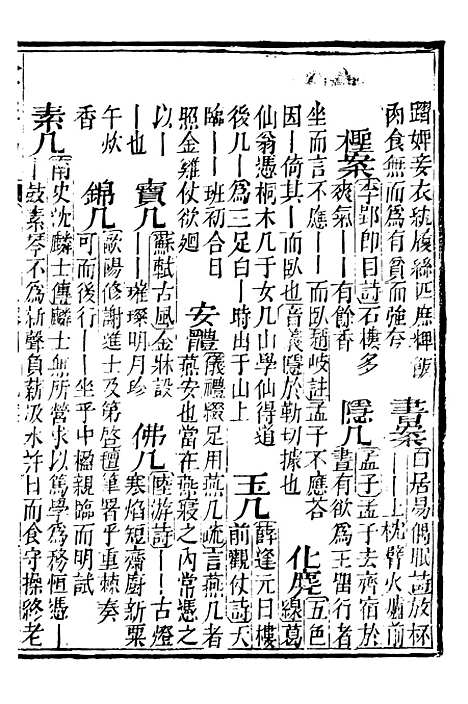 躡婢妾衣紈履絲匹庶粺飯
肉食無而為有貧而強奢 書案 白居易偶眠詩放杯
｜｜上枕臂火爐前
檉案 李郢即目詩石樓多
爽氣｜｜有餘香 隱几 孟子孟子去齊宿於
晝有欲為王留行者
坐而言不應｜｜而臥趙岐註孟子不應荅
因｜倚其｜而臥也音義隱於靳切據也 化麂 五色
線葛
仙翁憑桐木几于女几山學仙得道
後几｜為三足白｜時出于山上 玉几 薛逢元日樓
前觀仗詩天
臨｜｜班初合日
照金雞仗欲迴 安體 儀禮綴足用燕几疏言燕几者
燕安也當在燕寢之内常憑之
以｜安體
｜也 寶几 蘇軾古風金牀設
｜｜璀璨明月珍 佛几 陸游詩｜｜古燈
寒焰短齋廚新粟
午炊
香 錦几 歐陽修謝進士及第啓穜筆署乎重棘奏
可而後行｜｜坐乎中楹親臨而明試
素几 南史沈麟士傳麟士無所營求以篤學為務恒憑｜
｜鼓素琴不為新聲負薪汲水并日而食守操終老